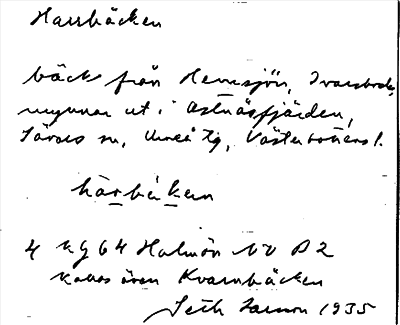 Harrbäcken
bäck från Hemsjön,
mynnar ut i Östnäsfjärden,
Sävars sn, Umeå tg, Västerbottens l.
hárbäken
4 kg 64 Holmön NV B2
Kallas även Kvarnbäcken
Seth 1935